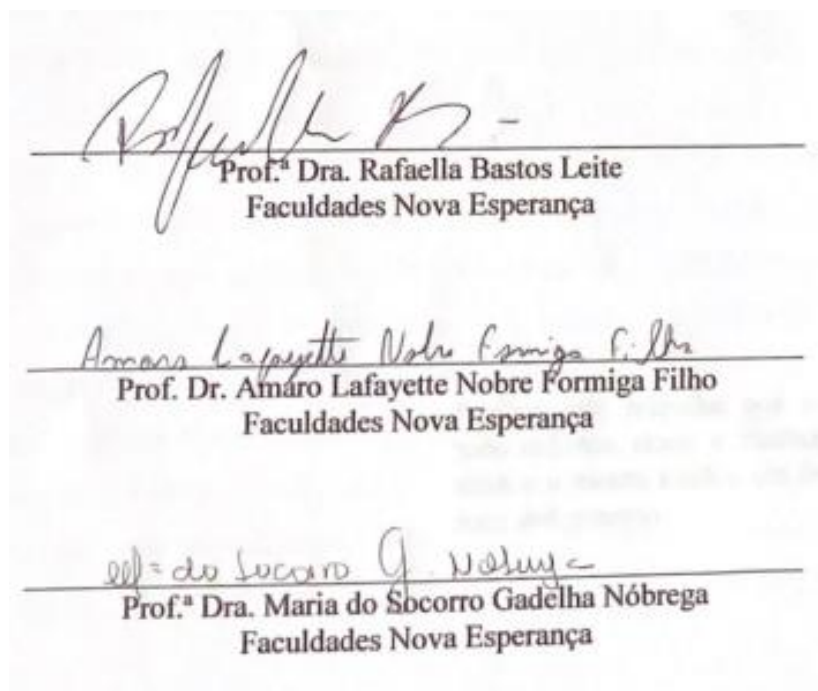 Prof.ª Dra. Rafaella Bastos Leite
Faculdades Nova Esperança
Amaro Lafayette Nobre Formiga Filho
Prof. Dr. Amaro Lafayette Nobre Formiga Filho
Faculdades Nova Esperança
Mª do Socorro G. Nóbrega
Prof.ª Dra. Maria do Socorro Gadelha Nóbrega
Faculdades Nova Esperança